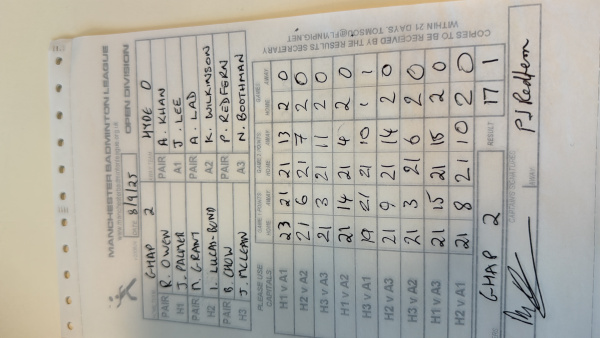 MANCHESTER BADMINTON LEAGUE
8/9/25 OPEN DIVISION
GHAP 2 HYDE O
PAIR R. OWEN PAIR A. KHAN
H1 J. PALMER A1 J. LEE
PAIR N. GRANT PAIR A. LAD
H2 I. LUCAS-BOND A2 K. WILKINSON
PAIR B. CHOW PAIR P. REDFERN
H3 J. MCLEAN A3 N. BOOTHMAN
PLEASE USE CAPITALS GAME 1 POINTS GAME 2 POINTS GAMES
HOME AWAY HOME AWAY HOME AWAY
H1 V A1 23 21 21 13 2 0
H2 V A2 21 6 21 7 2 0
H3 V A3 21 3 21 11 2 0
H1 V A2 21 14 21 4 2 0
H3 V A1 19 21 21 10 1 1
H2 V A3 21 9 21 14 2 0
H3 V A2 21 3 21 6 2 0
H1 V A3 21 15 21 15 2 0
H2 V A1 21 8 21 10 2 0
GHAP 2 RESULT 17 1
CAPTAINS SIGNATURES
AWAY PJ Redfern
COPIES TO BE RECEIVED BY THE RESULTS SECRETARY
WITHIN 21 DAYS. TOMSO@FLYNPIG.NET